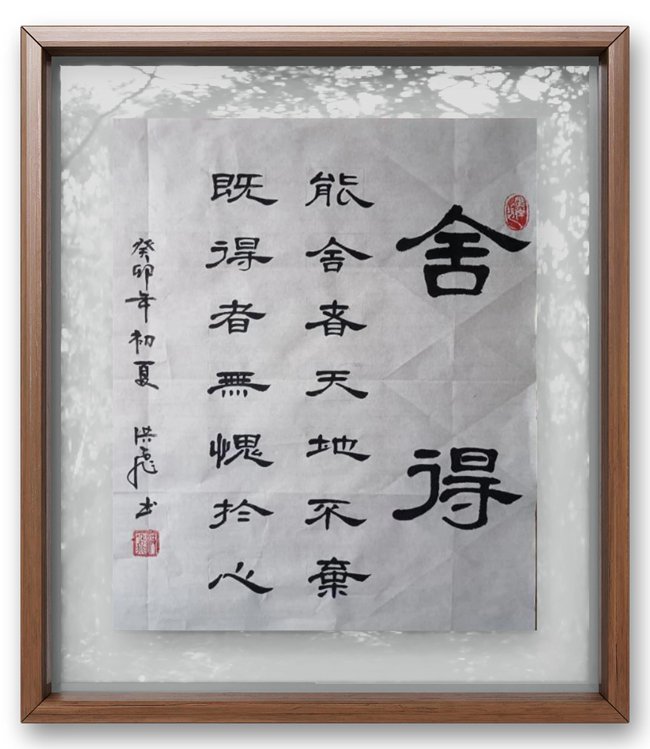 舍得
能舍者天地不棄
既得者無愧於心
癸卯年初夏 洪 书